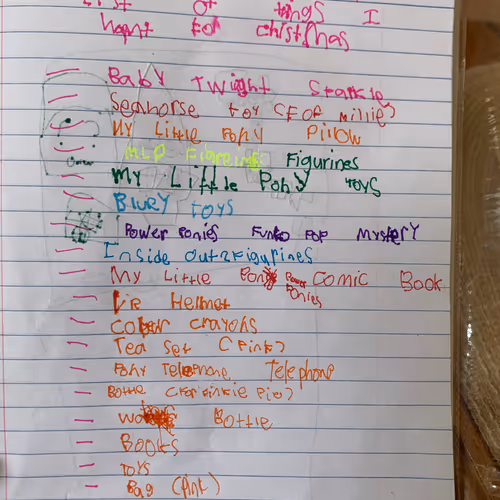 List of tings I
want for chistmas
Baby Twight Sparkle
Seahorse toy (FOr millie)
My Little Pony Pillow
MLP Figurines Figurines
My Little Pony toys
Bluey toys
Power Ponies Funko Pop mystery
Inside out 2 Figurines
My Little Pony Power Ponies Comic Book
Helmet
crayons
Tea Set (Pink)
Pony Telephone Telephone
Bottle (For Pinkie Pie)
Bottle
Books
toys
Bag (Pink)